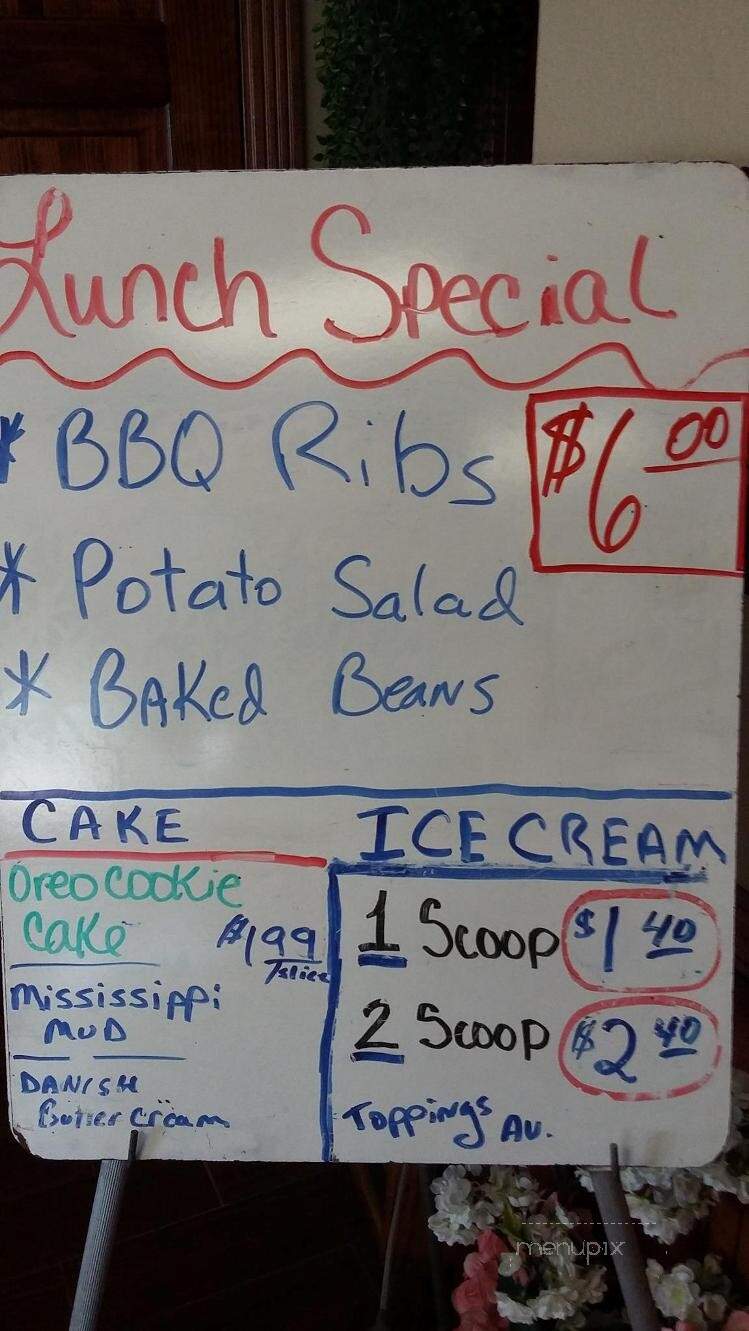 Lunch Special
* BBQ Ribs $6 00
* Potato Salad
* Baked Beans
CAKE
Oreo Cookie
Cake $1 99
/slice
Mississippi
MUD
DANISH
Butter cream
ICE CREAM
1 Scoop $1 40
2 Scoop $2 40
Toppings Av.
menupix